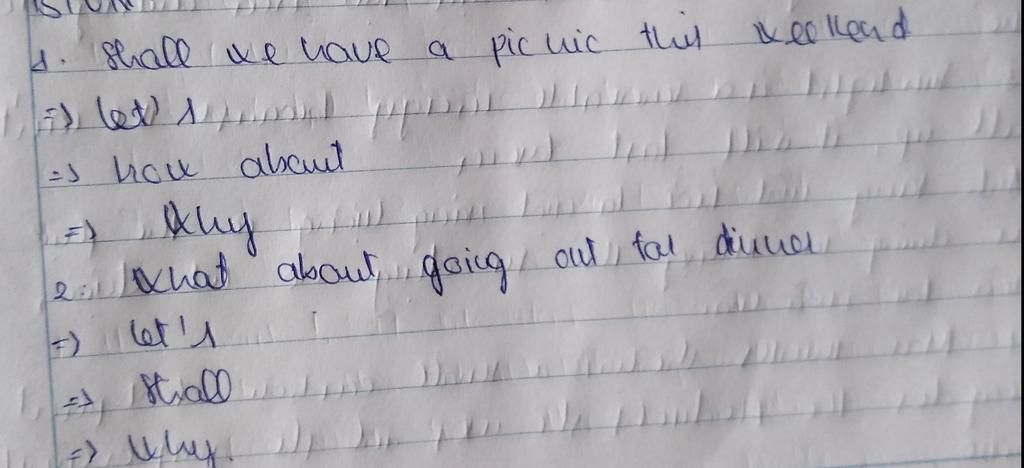 1. Shall we have a picnic this weekend
=> let's
=> how about
=> Why
2. What about going out for dinner
=> let's
=> Shall
=> Why